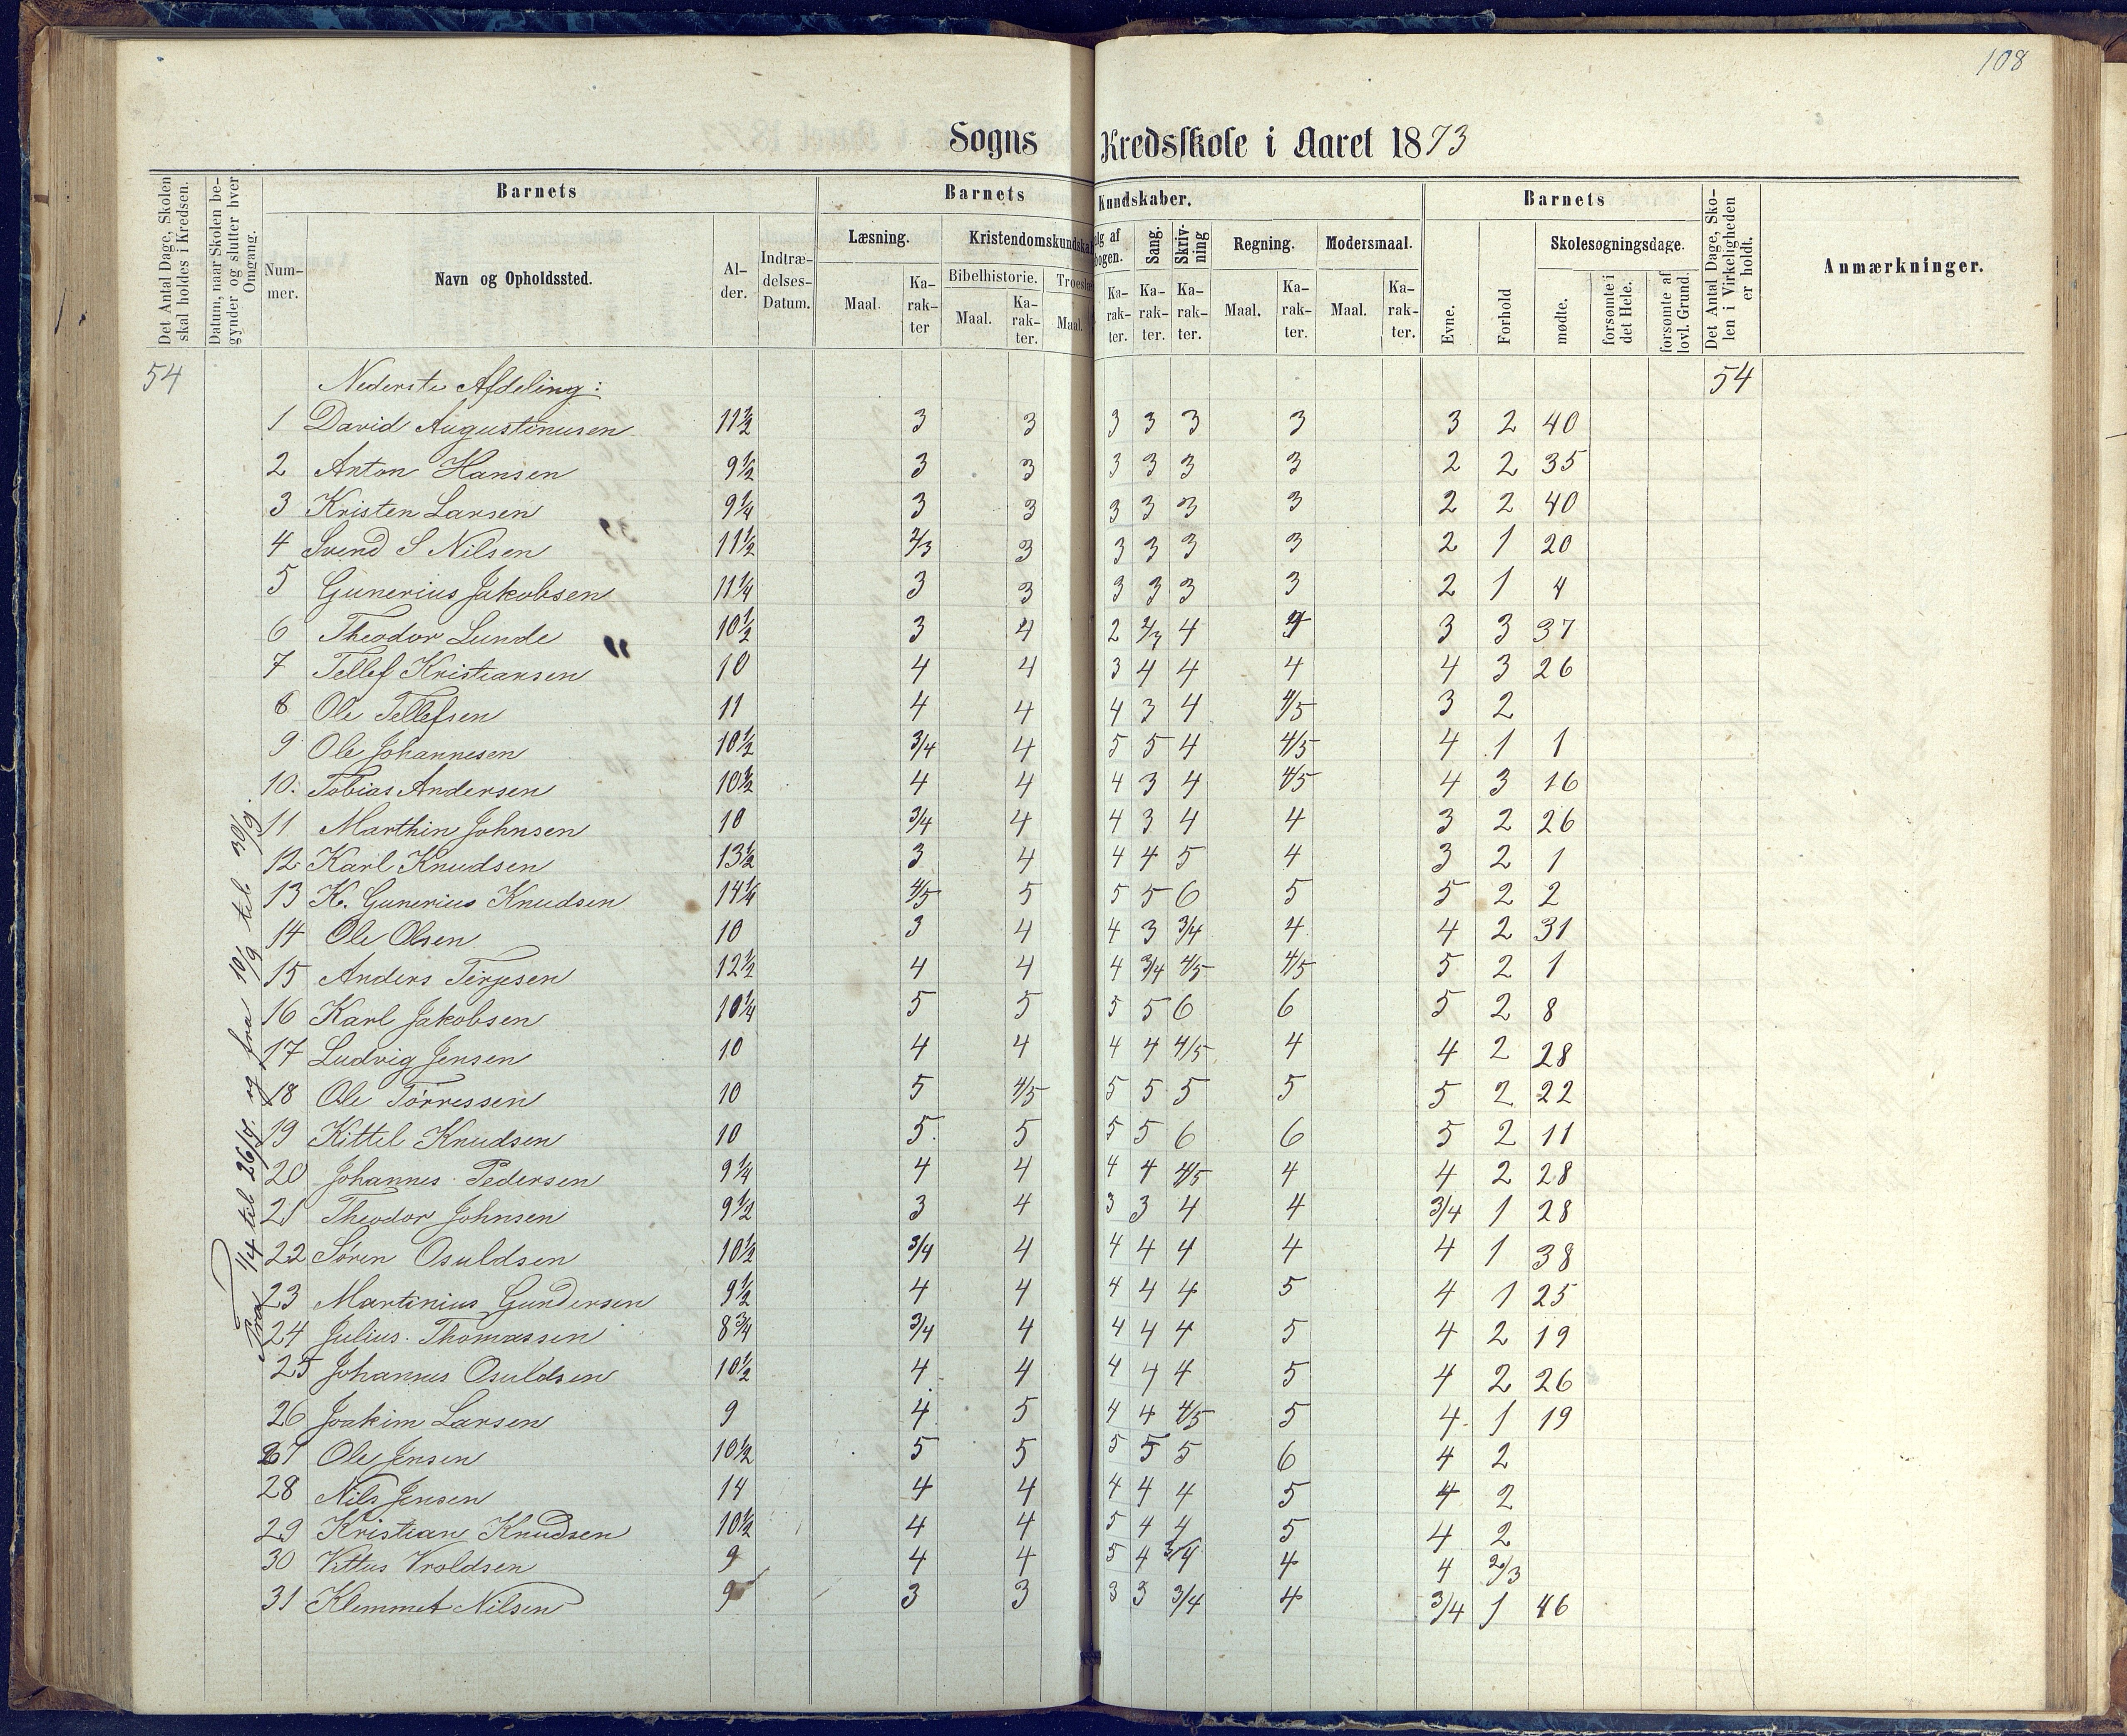 108
Sogns Kredsskole i Aaret 1873
Det Antal Dage, Skolen skal holdes i Kredsen.
Datum, naar Skolen begynder og slutter hver Omgang.
Barnets
Nummer.
Navn og Opholdssted.
Alder.
Indtrædelses-Datum.
Barnets Kundskaber.
Læsning.
Maal.
Karakter
Kristendomskundska
Bibelhistorie.
Maal.
Karakter.
Troeslæ
Maal.
ulg af
bogen.
Karakter.
Sang.
Karakter.
Skrivning
Karakter.
Regning.
Maal.
Karakter.
Modersmaal.
Maal.
Karakter.
Barnets
Evne.
Forhold
Skolesøgningsdage.
mødte.
forsømte i det Hele.
forsømte af lovl. Grund.
Det Antal Dage, Skolen i Virkeligheden er holdt.
Anmærkninger.
54 Nederste Afdeling: 54
Fra 1/4 til 26/4. og fra 10/9 til 30/9.
1 David Augustinusen 11 1/2 3 3 3 3 3 3 3 2 40
2 Anton Hansen 9 1/2 3 3 3 3 3 3 2 2 35
3 Kristen Larsen 9 1/4 3 3 3 3 3 3 2 2 40
4 Svend S Nilsen 11 1/2 2/3 3 3 3 3 3 2 1 20
5 Gunerius Jakobsen 11 1/4 3 3 3 3 3 3 2 1 4
6 Theodor Lunde 10 1/2 3 4 2 2/3 4 3 3 37
7 Tellef Kristiansen 10 4 4 3 4 4 4 4 3 26
8 Ole Tellefsen 11 4 4 4 3 4 4/5 3 2
9 Ole Johannesen 10 1/2 3/4 4 5 5 4 4/5 4 1 1
10. Tobias Andersen 10 1/2 4 4 4 3 4 4/5 4 3 16
11 Marthin Johnsen 10 3/4 4 4 3 4 4 3 2 26
12 Karl Knudsen 13 1/2 3 4 4 4 5 4 3 2 1
13 K. Gunerius Knudsen 14 1/4 4/5 5 5 5 6 5 5 2 2
14 Ole Olsen 10 3 4 4 3 3/4 4 4 2 31
15 Anders Terjesen 12 1/2 4 4 4 3/4 4/5 4/5 5 2 1
16 Karl Jakobsen 10 1/4 5 5 5 5 6 6 5 2 8
17 Ludvig Jensen 10 4 4 4 4 4/5 4 4 2 28
18 Ole Tørressen 10 5 4/5 5 5 5 5 5 2 22
19 Kittel Knudsen 10 5 5 5 5 6 6 5 2 11
20 Johannes Pedersen 9 1/4 4 4 4 4 4/5 4 4 2 28
21 Theodor Johnsen 9 1/2 3 4 3 3 4 4 3/4 1 28
22 Søren Osuldsen 10 1/2 3/4 4 4 4 4 4 4 1 38
23 Martinius Gundersen 9 1/2 4 4 4 4 4 5 4 1 25
24 Julius Thomassen 8 3/4 3/4 4 4 4 4 5 4 2 19
25 Johannes Osuldsen 10 1/2 4 4 4 4 4 5 4 2 26
26 Joakim Larsen 9 4 5 4 4 4/5 5 4 1 19
27 Ole Jensen 10 1/2 5 5 5 5 5 6 4 2
28 Nils Jensen 14 4 4 4 4 4 5 4 2
29 Kristian Knudsen 10 1/2 4 4 5 4 4 5 4 2
30 Vittus Vroldsen 9 4 4 5 4 3/4 4 4 2/3
31 Klemmet Nilsen 9 3 3 3 3 3/4 4 3/4 1 46